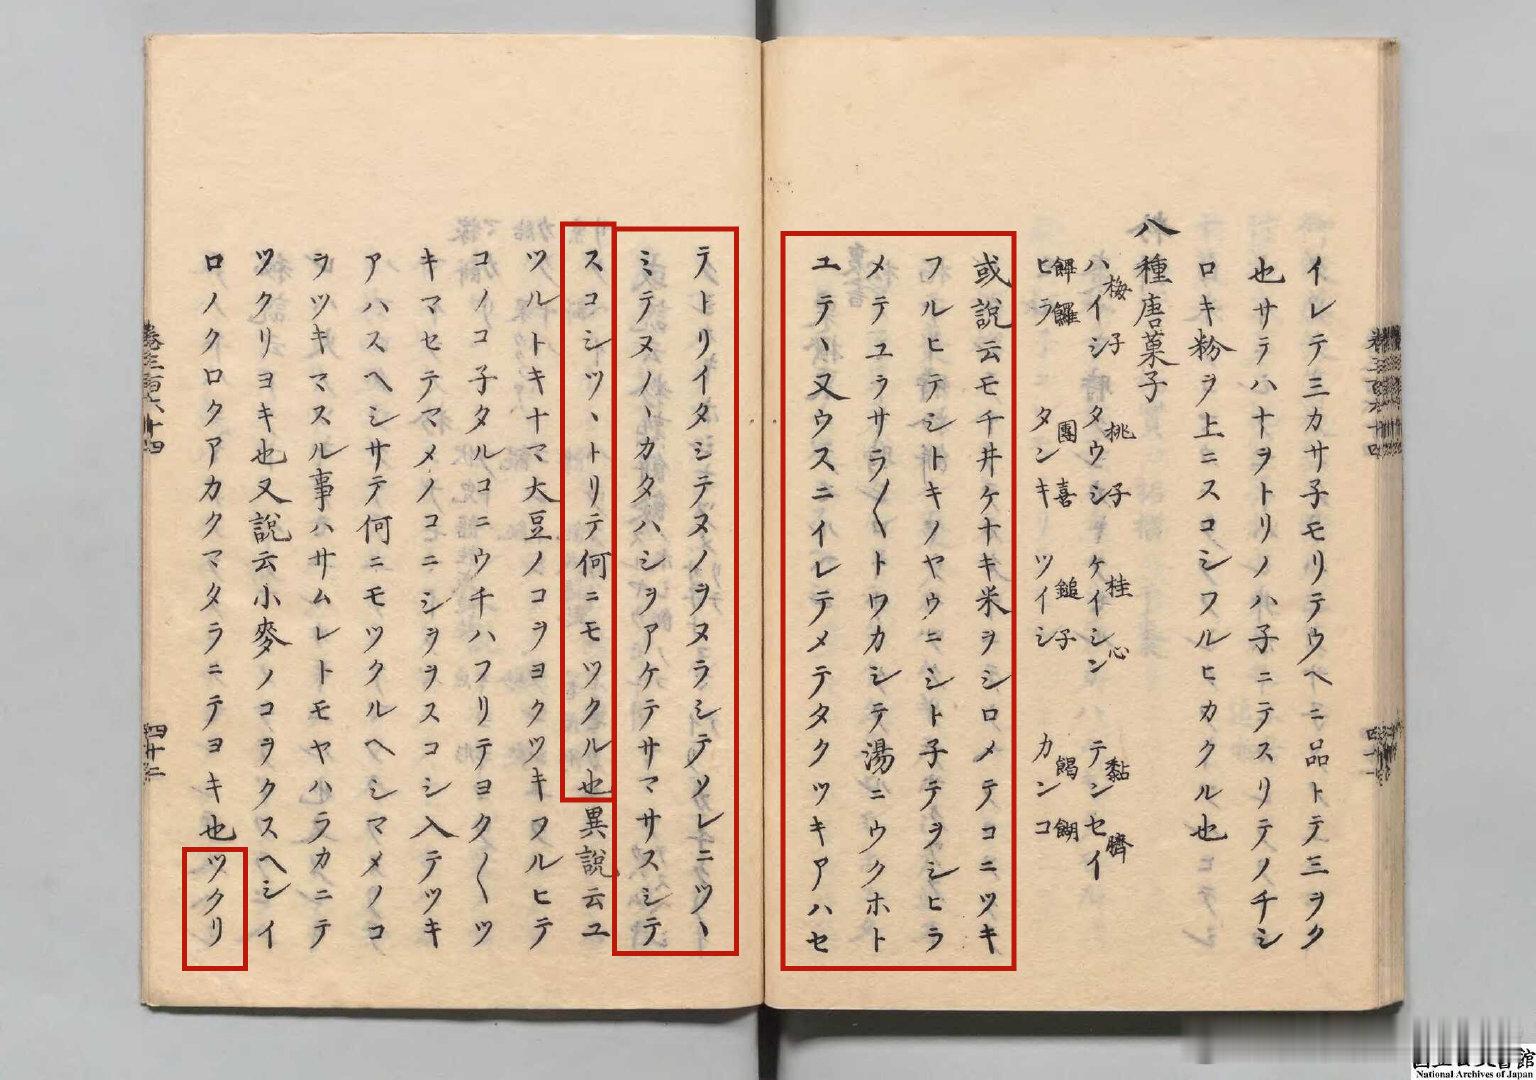 イレテ三カサ子モリテウヘニ品トテ三ヲク
也サラハナヲトリノハ子ニテスリテノチシ
ロキ粉ヲ上ニスコシフルヒカクル也
八種唐菓子
梅子 桃子 桂心 黏臍
ハイシ タウシ ケイシン テンセイ
饆饠 團喜 鎚子 餲餬
ヒラ タンキ ツイシ カンコ
或説云モチ井ケナキ米ヲシロメテコニツキ
フルヒテシトキノヤウニシト子テヲシヒラ
メテユラサラ〱トワカシテ湯ニウクホト
ユテヽ又ウスニイレテメテタクツキアハセ
テトリイタシテヌノヲヌラシテソレニツヽ
ミテヌノヽカタハシヲアケテサマサスシテ
スコシツヽトリテ何ニモツクル也異説云ユ
ツルトキナマ大豆ノコヲヨクツキフルヒテ
コノコ子タルコニウチハフリテヨク〱ツ
キマセテマメノコニシヲヲスコシ入テツキ
アハスヘシサテ何ニモツクルヘシマメノコ
ヲツキマスル事ハサムレトモヤハラカニテ
ツクリヨキ也又説云小麥ノコヲクスヘシイ
ロノクロクアカクマタラニテヨキ也ツクリ
四十二
National Archives of Japan